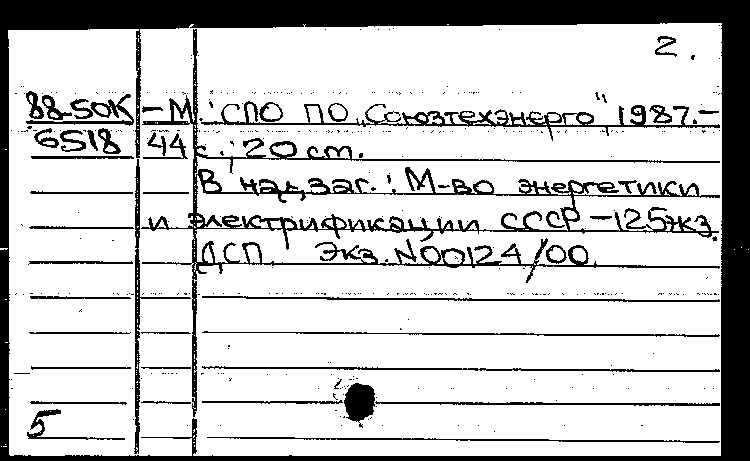 2.
88-50К – М.: СПО ПО „Союзтехэнерго", 1987. –
6518 44 с.; 20 cm.
В надзаг.: М-во энергетики
и электрификации СССР. – 125 экз.
ДСП. Экз. N00124/00.
5